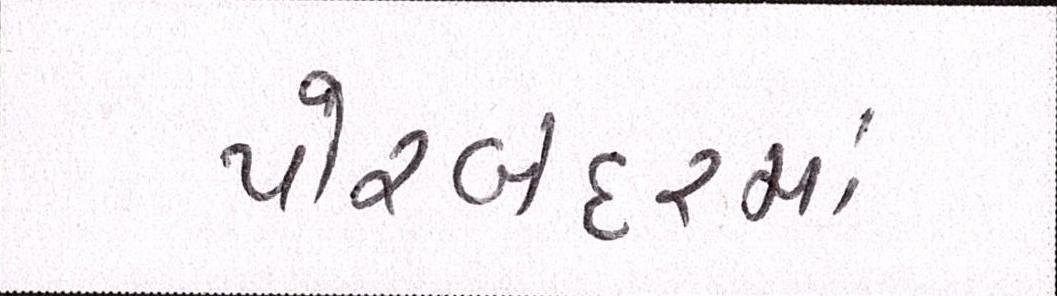 પોરબંદરમાં